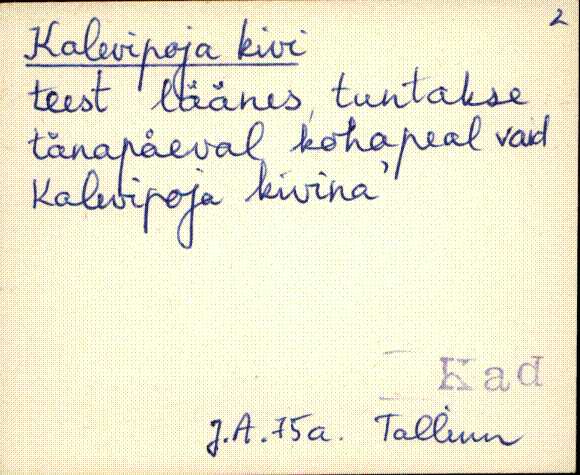 2
Kalevipoja kivi
teest läänes, tuntakse
tänapäeval kohapeal vaid
Kalevipoja kivina"
Kad
J.A. 75a. Tallinn